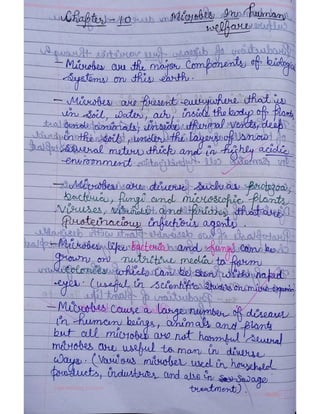 Chapter - 10 Microbes In human
welfare
- Microbes are the major components of biologi
systems on this earth.
- Microbes are present everywhere that is
in soil, water, air, inside the body of plants
and animals, inside thermal vents, deep
in the soil, under the layers of snow
several meters thick and in highly acidic
environment
- Microbes are diverse such as protozoa,
bacteria, fungi and microscopic plants
viruses, and that are
proteinacious infectious agents
- Microbes like bacteria and fungi can be
grown on nutritive media to form
colonies which can be seen with naked
eyes. (useful in scientific studies on micro-organism
- Microbes cause a large number of diseases
in human beings, animals and plants
but all microbes are not harmful several
microbes are useful to man in diverse
ways. (Various microbes used in household
products, industries and also in sewage
treatment).